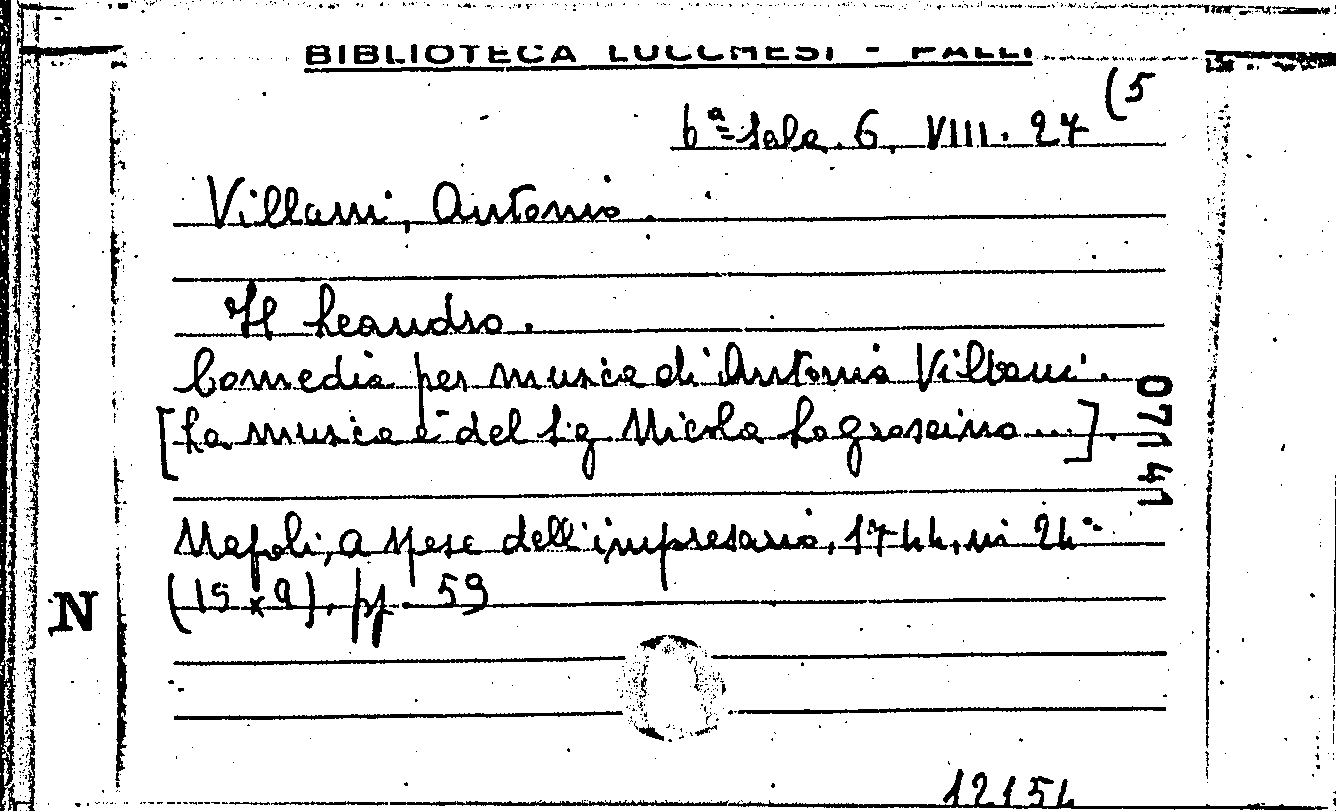 BIBLIOTECA LUCCHESI - PALLI
(5
6ª= Sala. 6. VIII. 27
Villani, Antonio.
Il Leandro.
Comedia per musica di Antonio Villani.
[La musica è del Sig Nicola Logroscino...].
07141
Napoli, a spese dell'impresario, 1744, in 24°
(15 x 9), pp. 59
N
12154